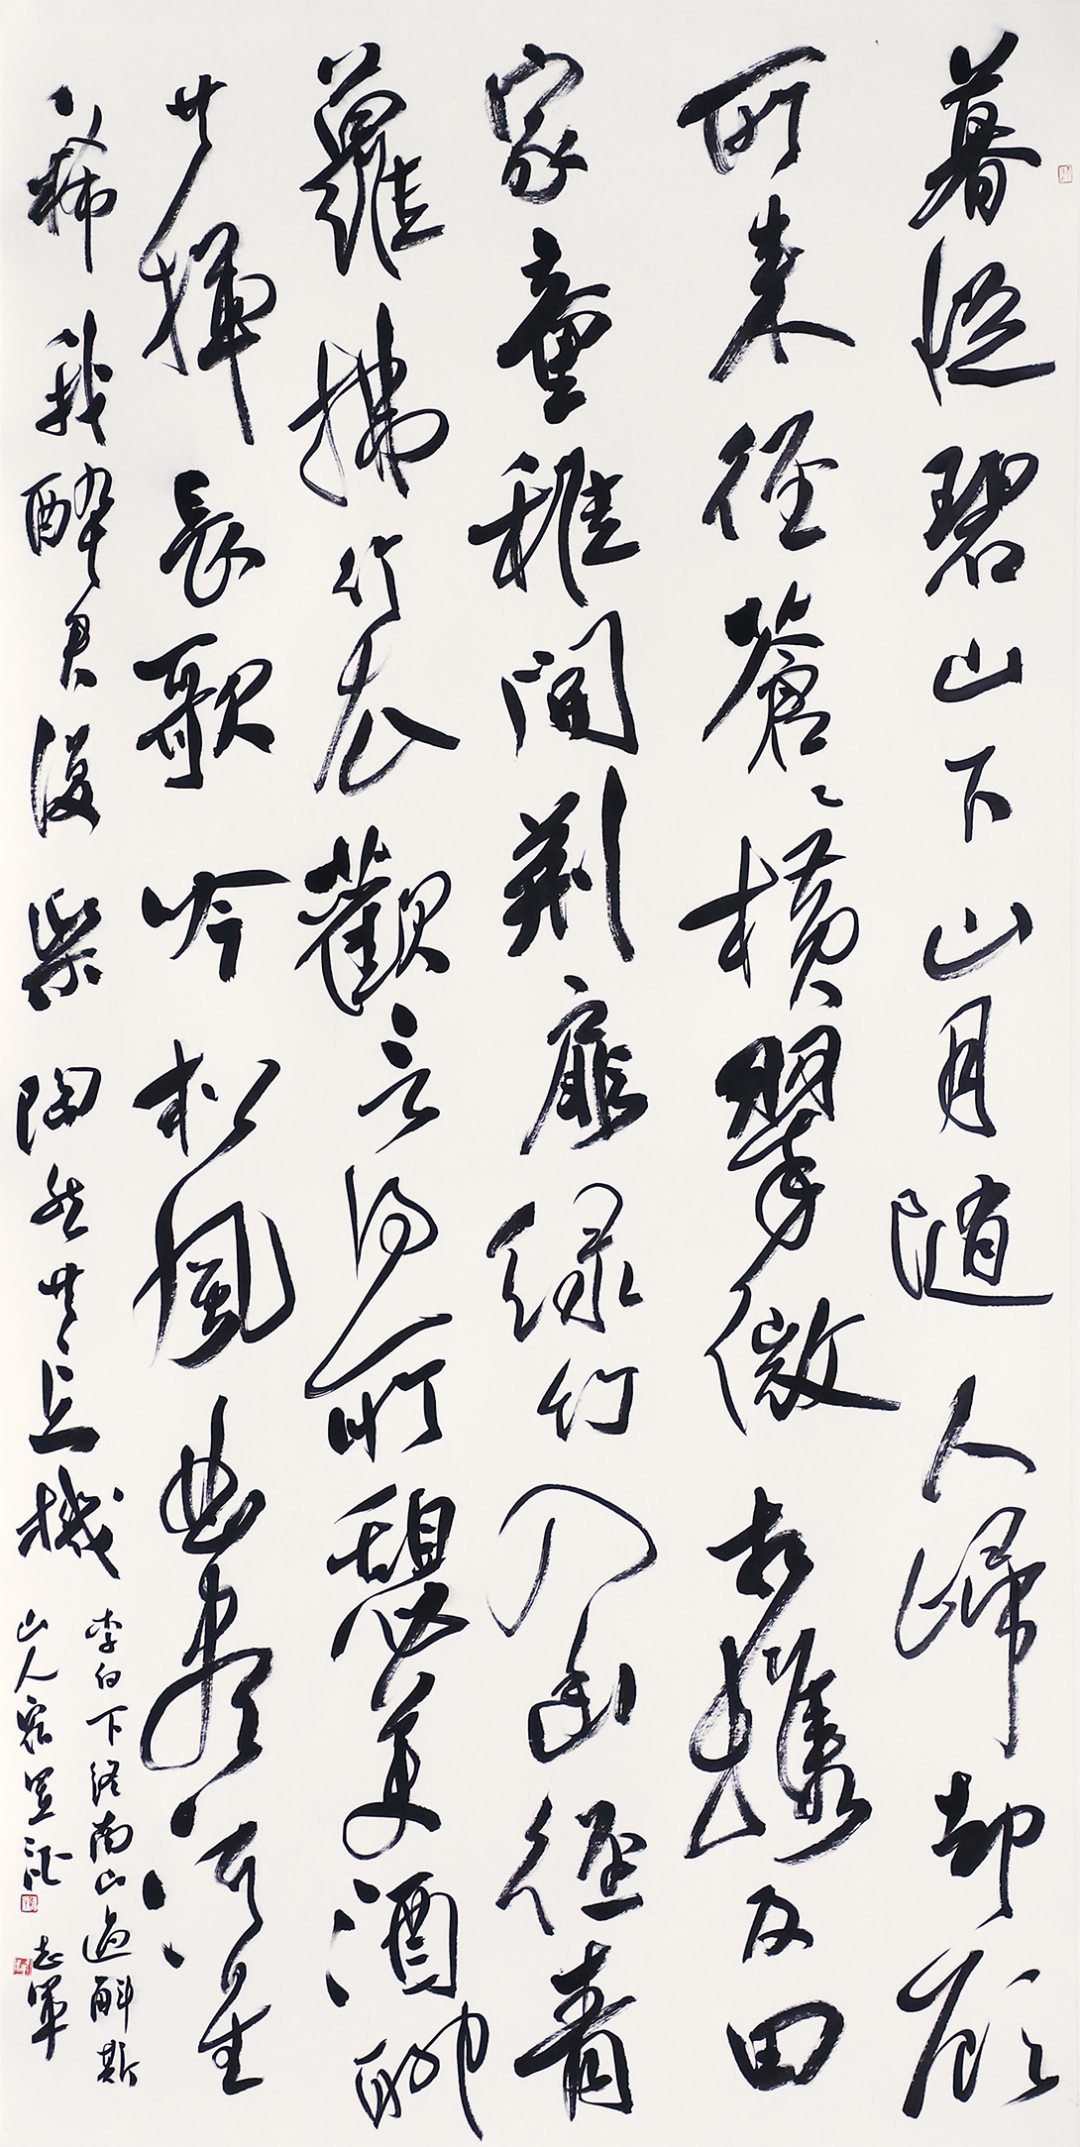 暮從碧山下山月隨人歸却顧
所來徑蒼々橫翠微相攜及田
家童稚開荊扉綠竹入幽徑青
蘿拂行衣歡言得所憩美酒聊
共揮長歌吟松風曲盡河星
稀我醉君復樂陶然共忘機
李白下終南山過斛斯
山人宿置酒 志軍